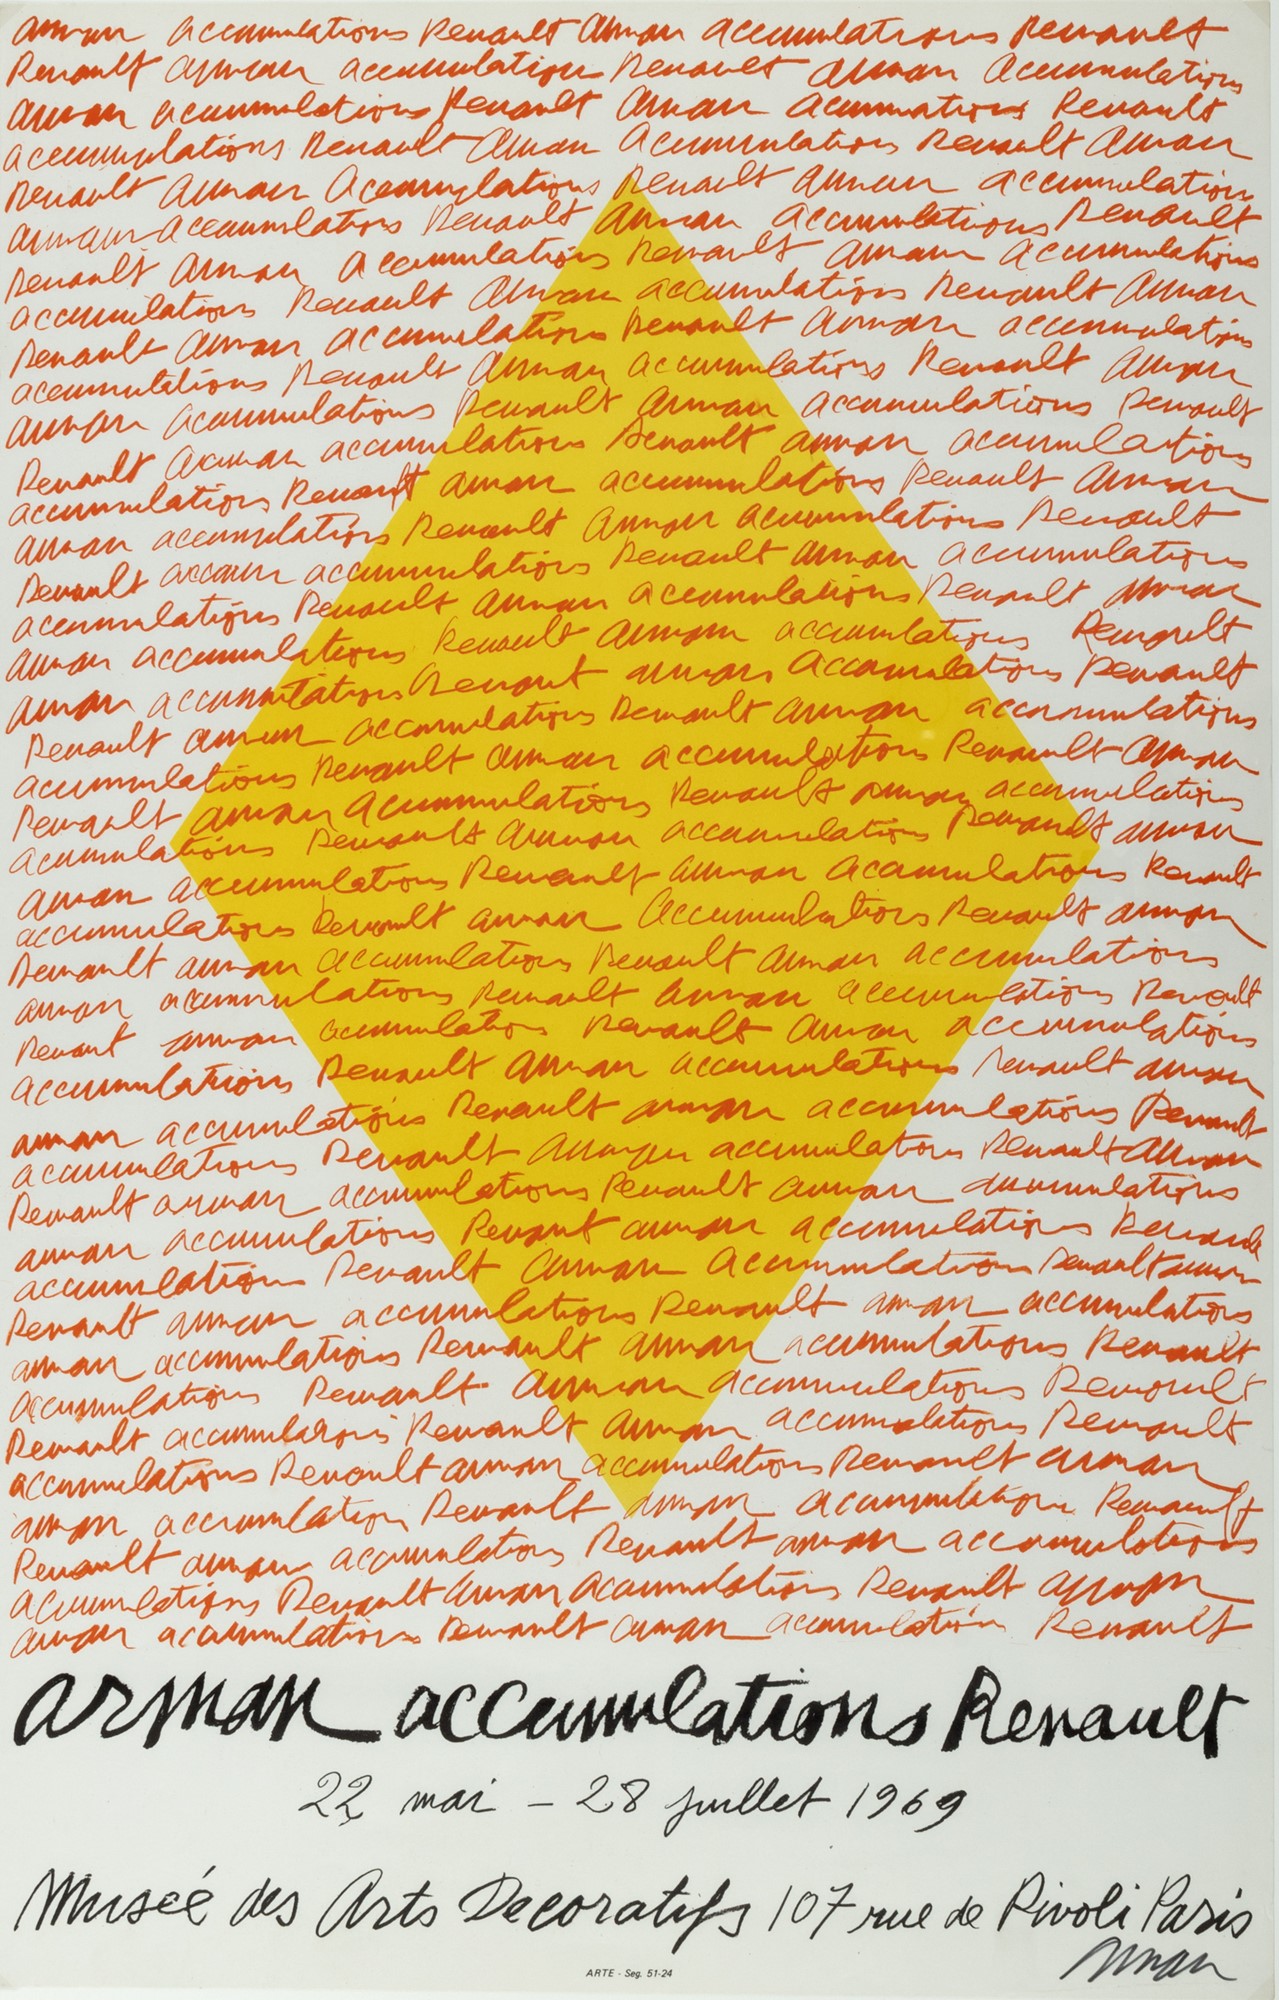 arman accumulations Renault arman accumulations Renault
Renault arman accumulation Renault arman accumulations
arman accumulations Renault arman acummations Renault
accumulations Renault arman accumulations Renault arman
Renault arman accumulations Renault arman accumulations
arman accumulations Renault arman accumulations Renault
Renault arman accumulations Renault arman accumulations
accumulations Renault arman accumulations Renault arman
Renault arman accumulations Renault arman accumulations
accumulations Renault arman accumulations Renault arman
arman accumulations Renault arman accumulations Renault
Renault arman accumulations Renault arman accumulations
accumulations Renault arman accumulations Renault arman
arman accumulations Renault arman accumulations Renault
Renault arman accumulations Renault arman accumulations
accumulations Renault arman accumulations Renault arman
arman accumulations Renault arman accumulations Renault
arman accumulations Renault arman accumulations Renault
Renault arman accumulations Renault arman accumulations
accumulations Renault arman accumulations Renault arman
Renault arman acummulations Renault arman accumulations
acumulations Renault arman accumulations Renault arman
arman accumulations Renault arman acamulations Renault
accumulations Renault arman accumulations Renault arman
Renault arman accumulations Renault arman accumulations
arman accumulations Renault arman accumulations Renault
Renaut arman accumulations Renault arman accumulations
accumulations Renault arman accumulations Renault arman
arman accumulations Renault arman accumulations Renault
accumulations Renault arman accumulations Renault arman
Renault arman accumulations Renault arman accumulations
arman accumulations Renaut arman accumulations Renault
accumulations Renault arman accumulations Renault arman
Renault arman accumulations Renault arman accumulations
arman accumulations Renault arman accumulations Renault
accumulations Renault arman accumulations Renault
Renault accumulations Renault arman accumulations Renault
accumulations Renault arman accumulations Renault arman
arman accumulation Renault arman acumulations Renault
Renault arman accumulations Renault arman accumulations
accumulations Renault arman acumulations Renault arman
arman accumulations Renault arman accumulations Renault
arman accumulations Renault
22 mai - 28 juillet 1969
Museé des Arts Decoratifs 107 rue de Rivoli Paris
arman
ARTE - Seg. 51-24